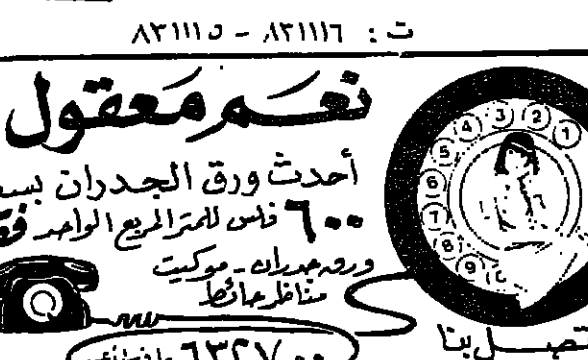 ت : ٨٣١١١٦ - ٨٣١١١٥
نعم معقول
أحدث ورق الجدران
٦٠٠ فلس للمتر المربع الواحد فقط
ورق جدران - موكيت
مناظر حائط
1 2 3 4 5 6 7 8 9
بنا